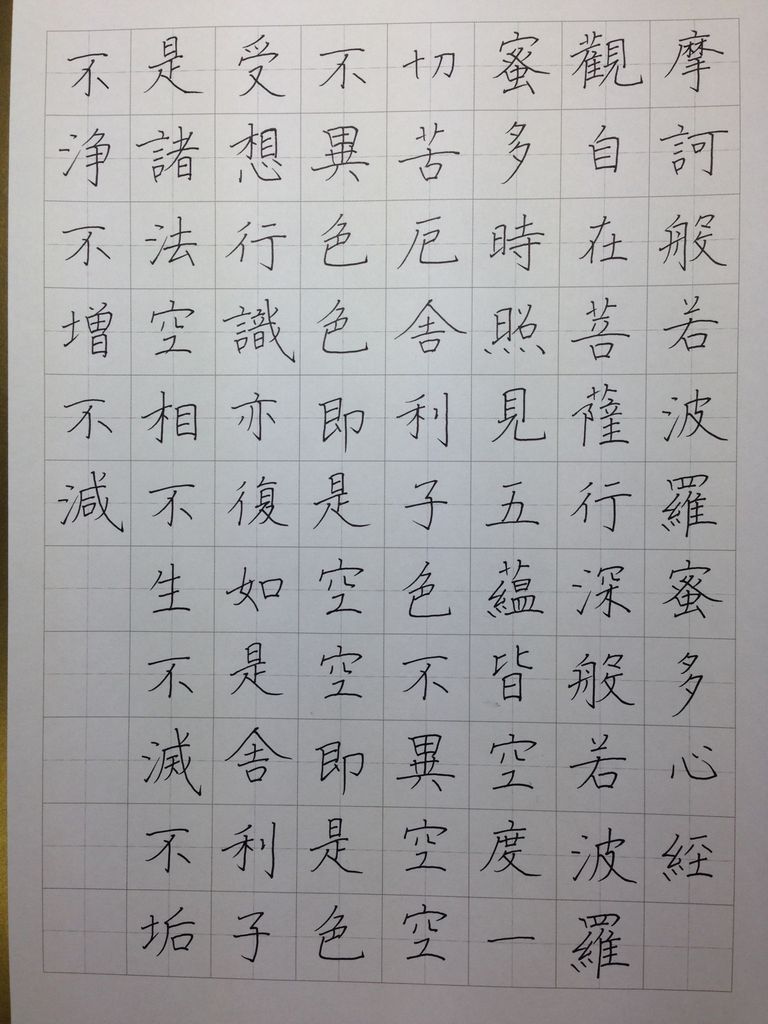 摩訶般若波羅蜜多心経
觀自在菩薩行深般若波羅
蜜多時照見五蘊皆空度一
切苦厄舎利子色不異空空
不異色色即是空空即是色
受想行識亦復如是舎利子
是諸法空相不生不滅不垢
不浄不増不減